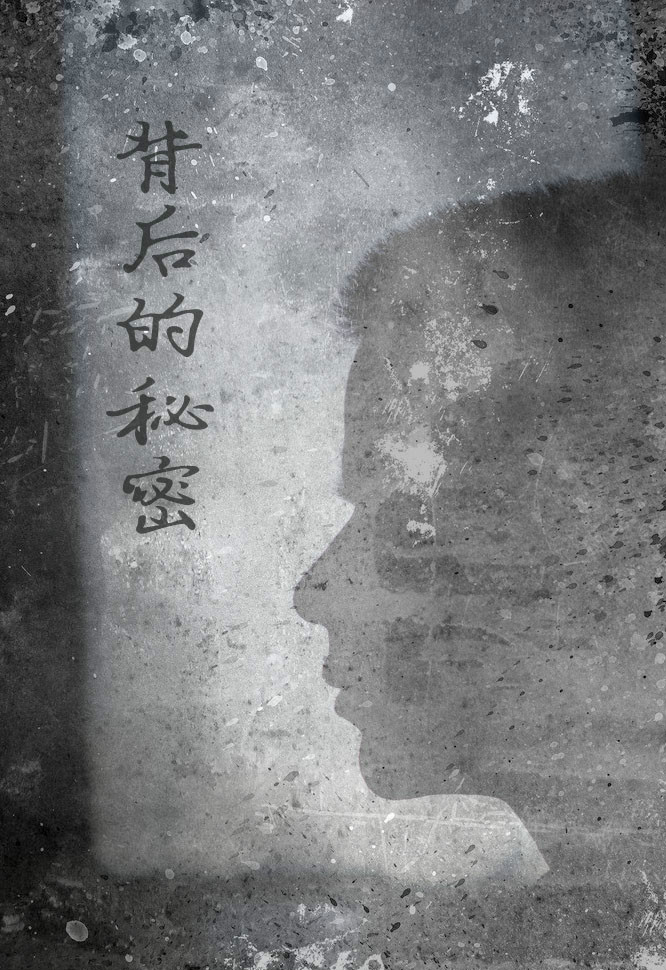 背后的秘密